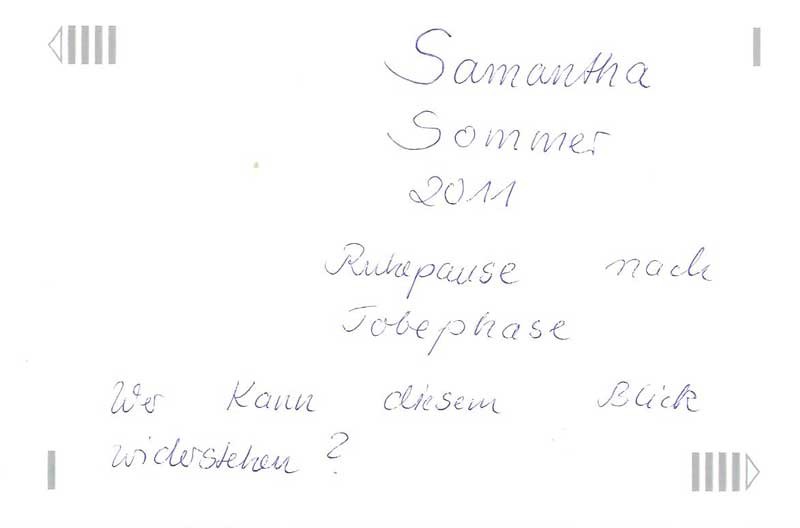 Samantha
Sommer
2011
Ruhepause nach
Tobephase
Wer kann diesem Blick
widerstehen?